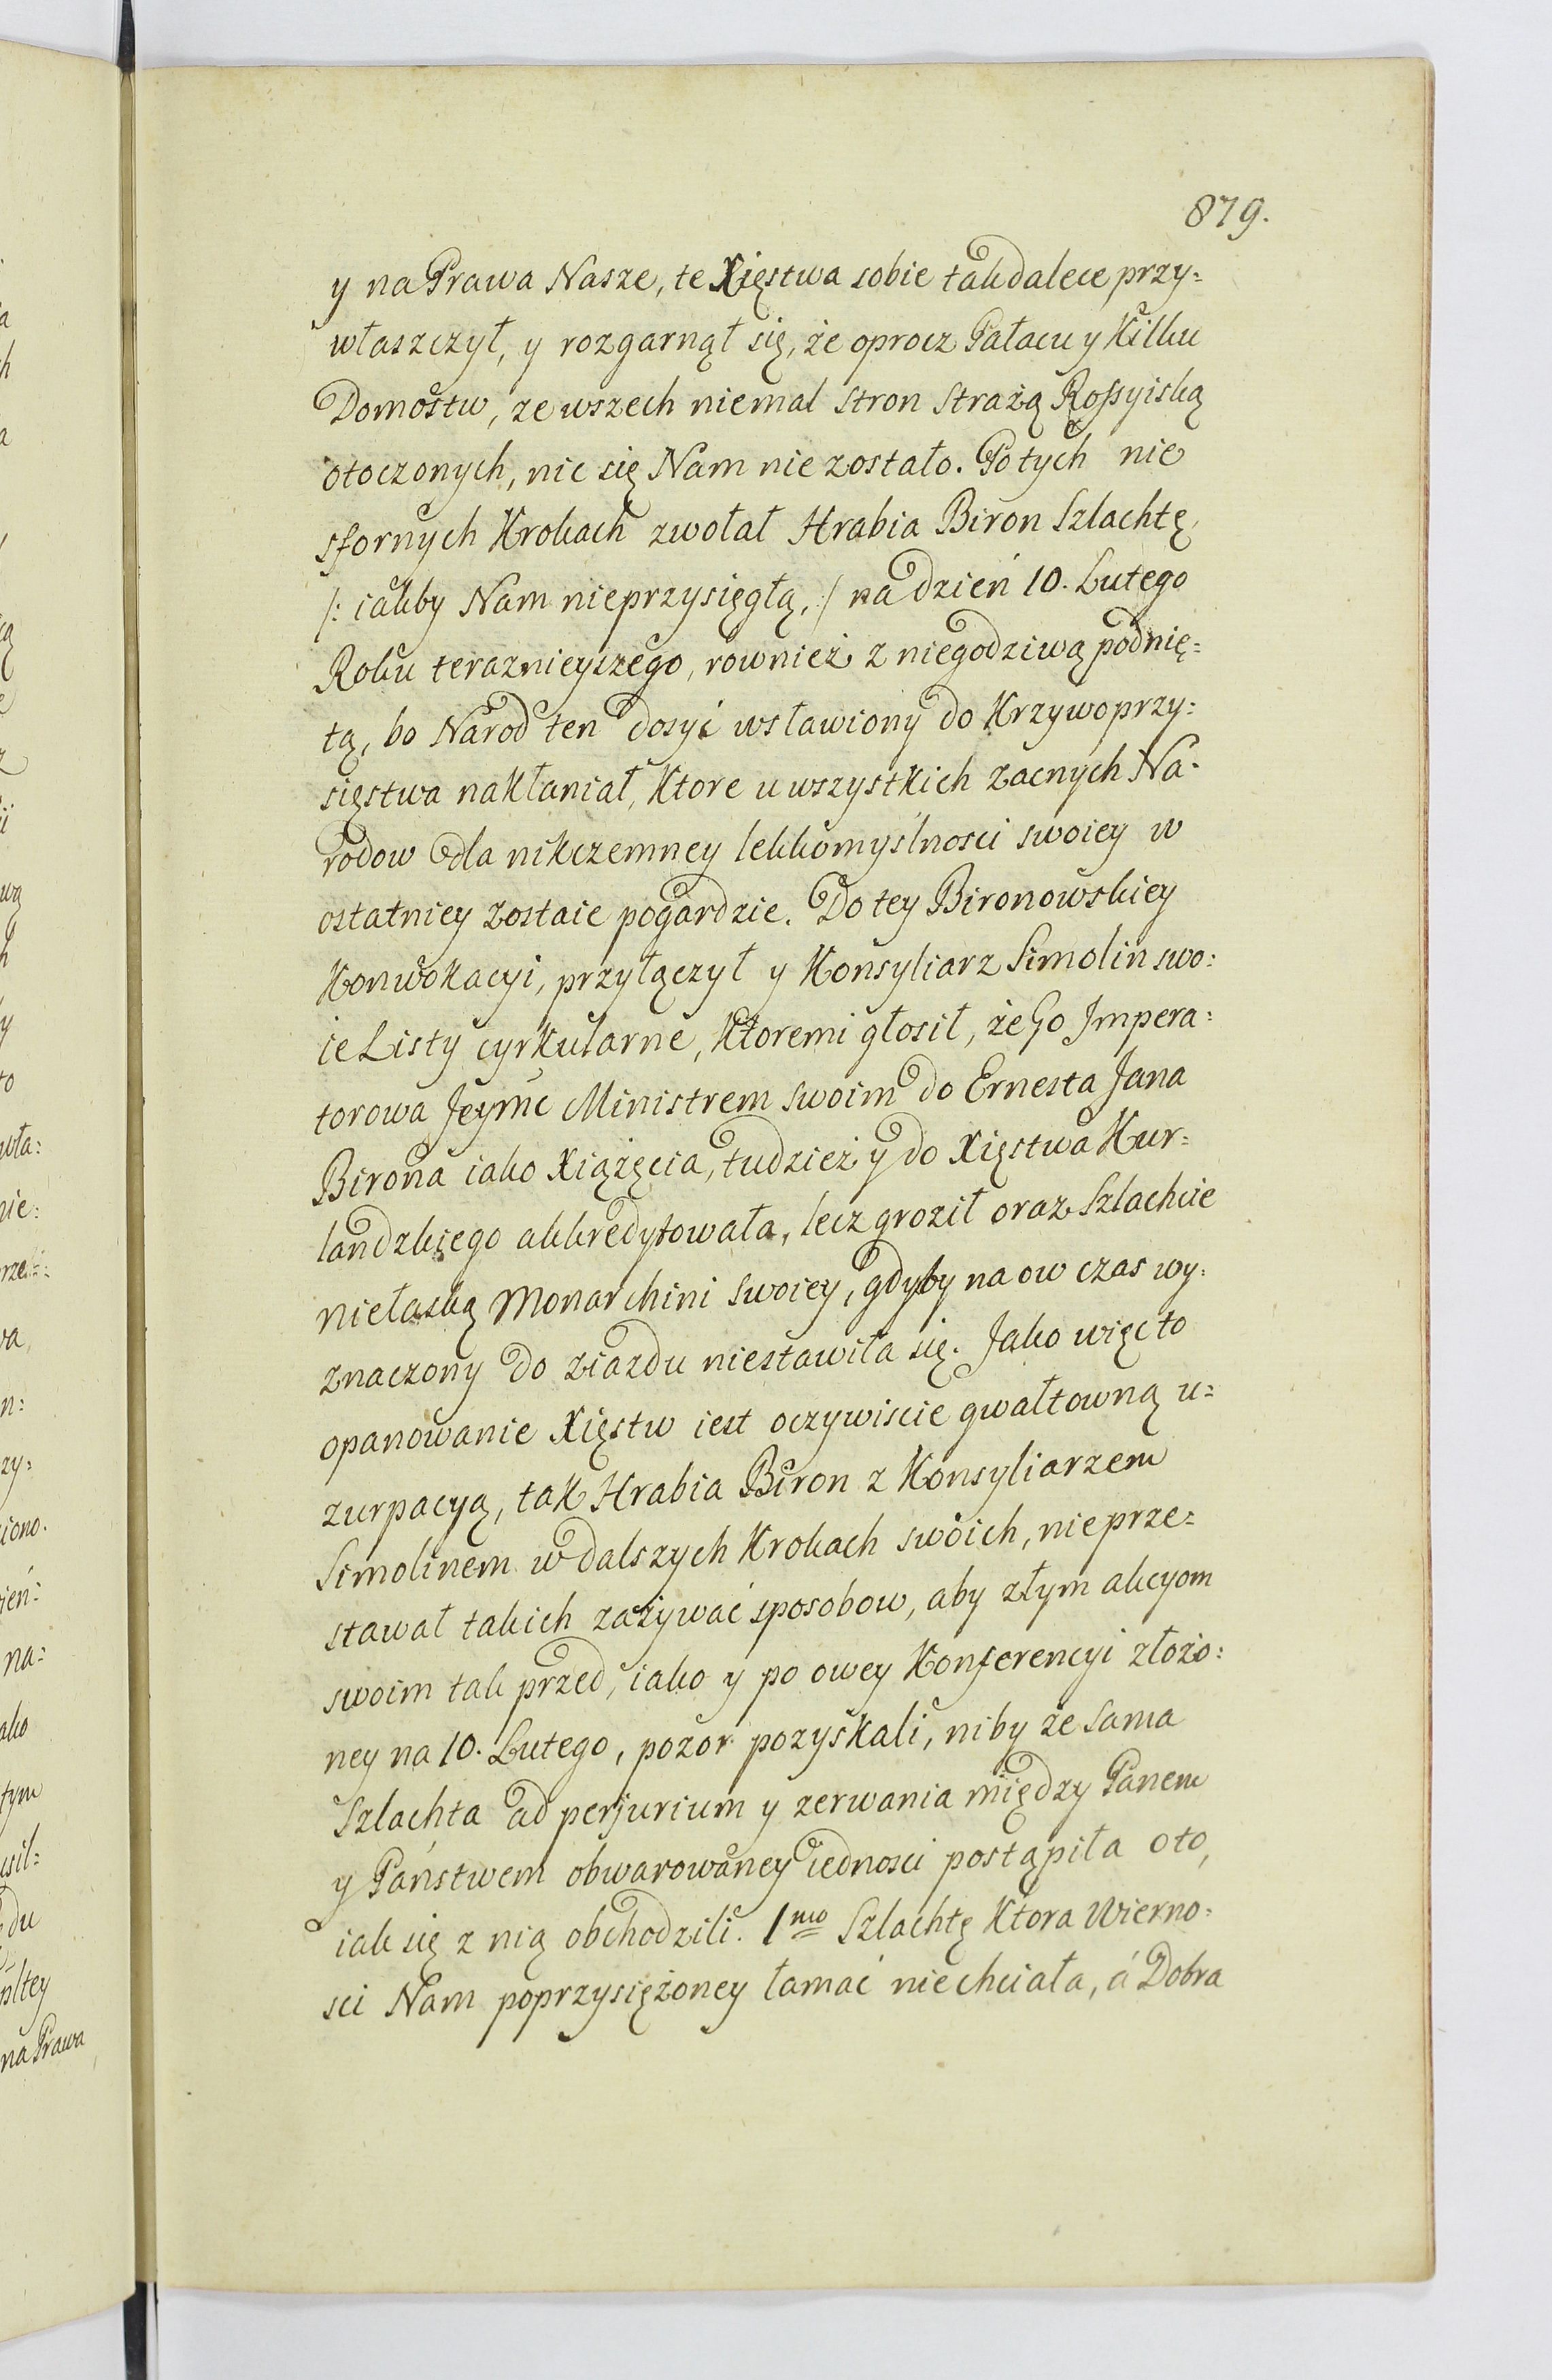 879.
y na Prawa Nasze, te Xięstwa sobie tak dalece przy=
właszczył, y rozgarnął się, że oprocz Pałacu y Kilku
Domostw, ze wszech niemal Stron Strażą Rossyiską
otoczonych, nic się Nam nie zostało. Po tych nie
sfornych Krokach zwołał Hrabia Biron Szlachtę,
/: iakby Nam nieprzysięgłą, :/ na dzień 10. Lutego
Roku teraznieyszego, rownież z niegodziwą podnię=
tą, bo Narod ten dosyć wsławiony do Krzywoprzy=
sięstwa nakłaniał, Ktore u wszystkich zacnych Na=
rodow dla nikczemney lekkomyślności swoiey w
ostatniey zostaie pogardzie. Do tey Bironowskiey
Konwokacyi, przyłączył y Konsyliarz Simolin swo=
ie Listy cyrkularne, Ktoremi głosił, że Go Impera=
torowa Jeymć Ministrem swoim do Ernesta Jana
Birona iako Xiążęcia, tudzież y do Xięstwa Kur=
landzkiego akkredytowała, lecz groził oraz Szlachcie
niełaską Monarchini swoiey, gdyby na ow czas wy=
znaczony do ziazdu niestawiła się. Jako więc to
opanowanie Xięstw iest oczywiscie gwałtowną u=
zurpacyą, tak Hrabia Biron z Konsyliarzem
Simolinem w dalszych Krokach swoich, nieprze=
stawał takich zażywać sposobow, aby złym akcyom
swoim tak przed, iako y po owey Konferencyi złożo=
ney na 10. Lutego, pozor pozyskali, niby że sama
Szlachta ad perjurium y zerwania między Panem
y Państwem obwarowaney iedności postąpiła oto,
iak się z nią obchodzili. 1mo Szlachtę Ktora Wierno=
sci Nam poprzysiężoney łamać niechciała, á Dobra